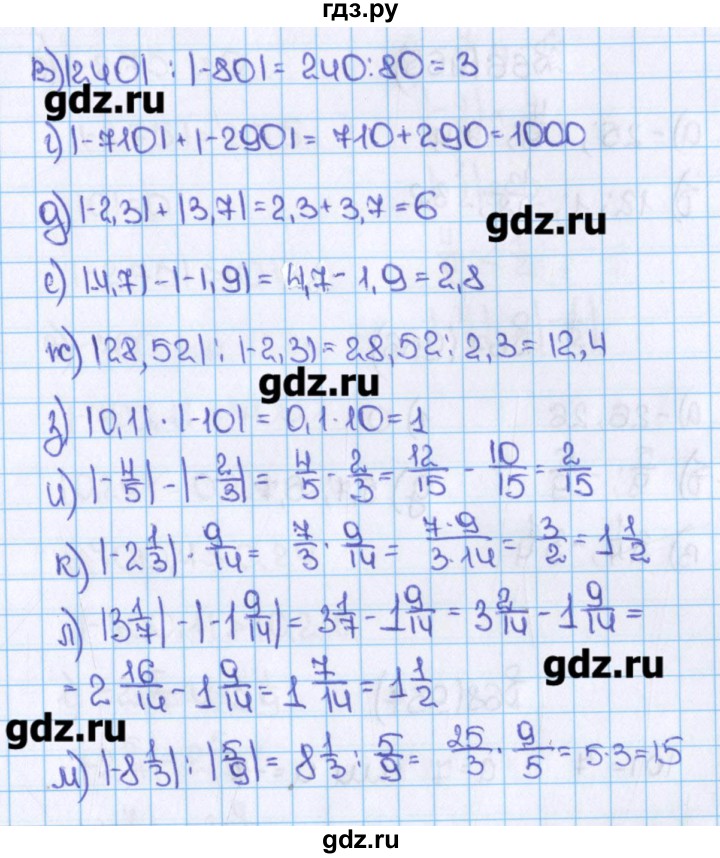 гдз.ру
в) |240| : |-80| = 240:80 = 3
gdz.ru
г) |-710| + |-290| = 710+290=1000
д) |-2,3| + |3,7| = 2,3 + 3,7 = 6
gdz.ru
е) |4,7| - |-1,9| = 4,7 - 1,9 = 2,8
ж) |28,52| : |-2,3| = 28,52 : 2,3 = 12,4
gdz.ru
з) |0,1| · |-10| = 0,1 · 10 = 1
и) |-4/5| - |-2/3| = 4/5 - 2/3 = 12/15 - 10/15 = 2/15
к) |-2 1/3| · 9/14 = 7/3 · 9/14 = 7·9/3·14 = 3/2 = 1 1/2
л) |3 1/7| - |-1 9/14| = 3 1/7 - 1 9/14 = 3 2/14 - 1 9/14 =
gdz.ru
= 2 16/14 - 1 9/14 = 1 7/14 = 1 1/2
gdz.ru
м) |-8 1/3| : |5/9| = 8 1/3 : 5/9 = 25/3 · 9/5 = 5·3=15
gdz.ru